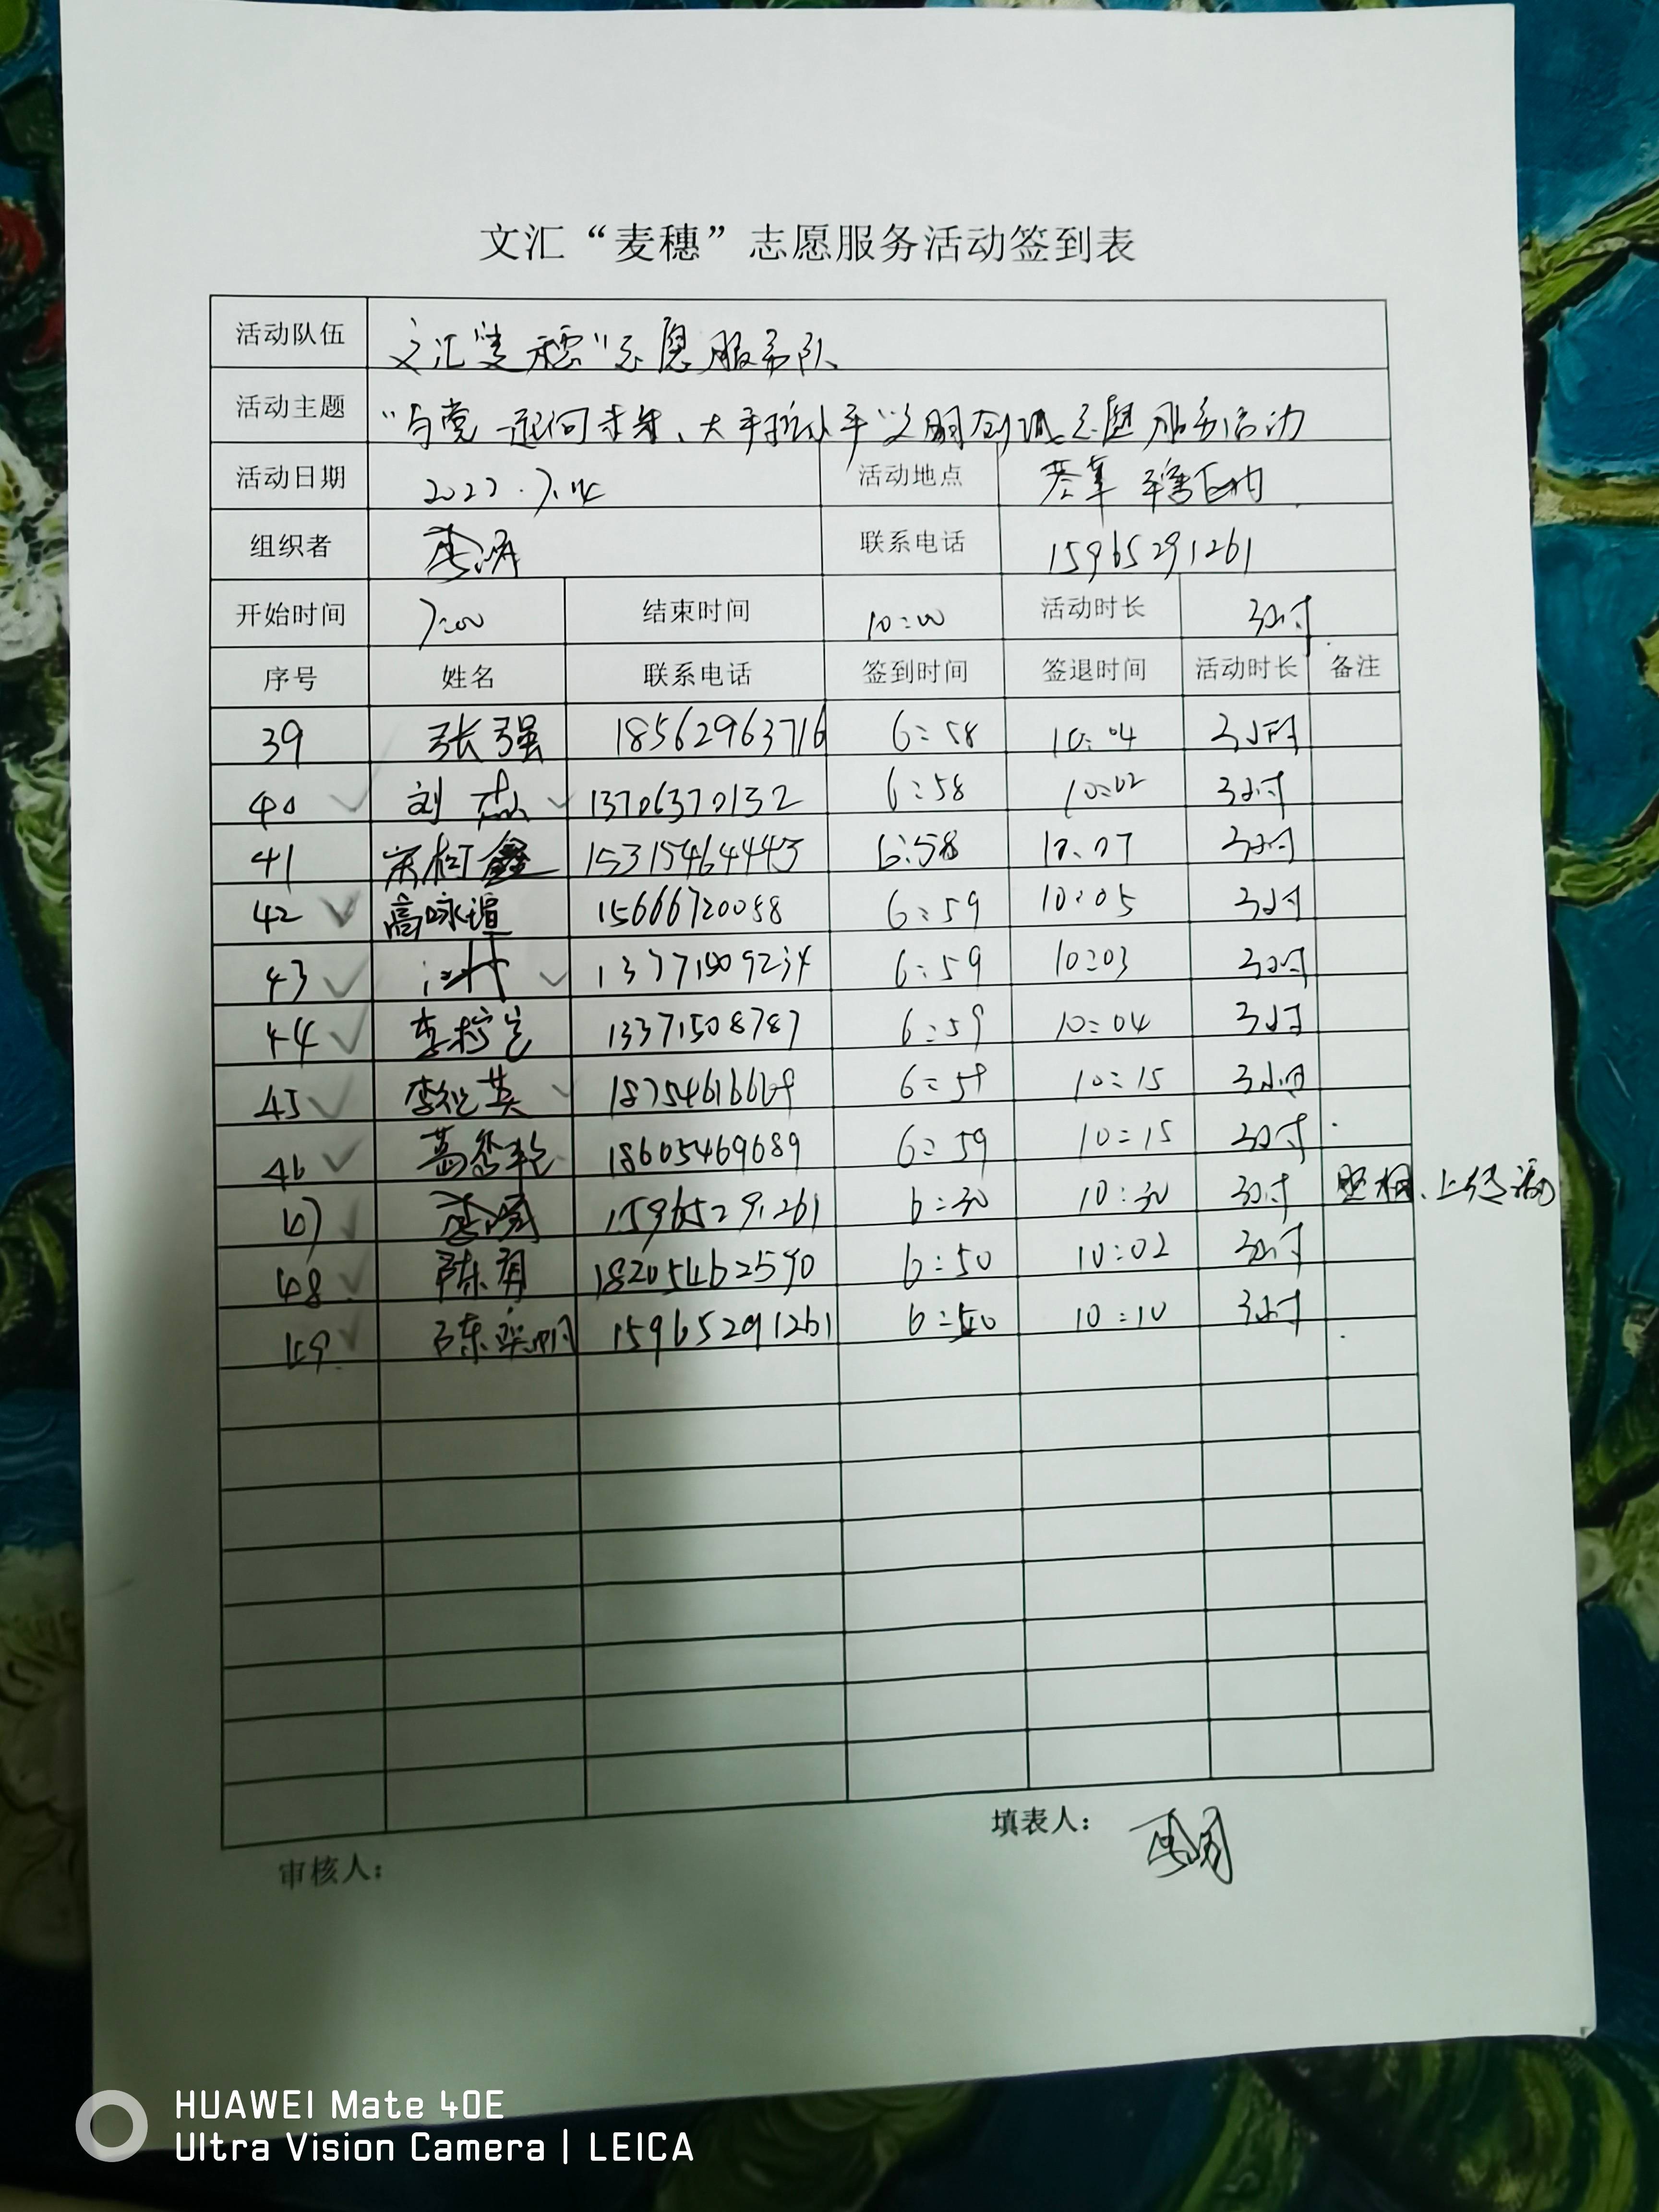 文汇“麦穗”志愿服务活动签到表
活动队伍 文汇“麦穗”志愿服务队
活动主题 “与党一起向未来、大手拉小手”文明创城志愿服务活动
活动日期 2022.7.14 活动地点 辖区内
组织者 李涛 联系电话 15965291261
开始时间 7:00 结束时间 10:00 活动时长 3小时
序号 姓名 联系电话 签到时间 签退时间 活动时长 备注
39 张强 18562963716 6:58 10:04 3小时
40 刘杰 13706370132 6:58 10:02 3小时
41 宋柯鑫 15315464443 6:58 10:07 3小时
42 高咏谊 15666720088 6:59 10:05 3小时
43 6:59 10:03 3小时
44 13371508787 6:59 10:04 3小时
45 6:59 10:15 3小时
46 葛秀艳 18605469689 6:59 10:15 3小时
47 李涛 15965291261 6:30 10:30 3小时 照相、上传活动
48 陈 18205462590 6:50 10:02 3小时
49 陈 15965291261 6:50 10:10 3小时
填表人： 李涛
审核人：
HUAWEI Mate 40E
Ultra Vision Camera | LEICA